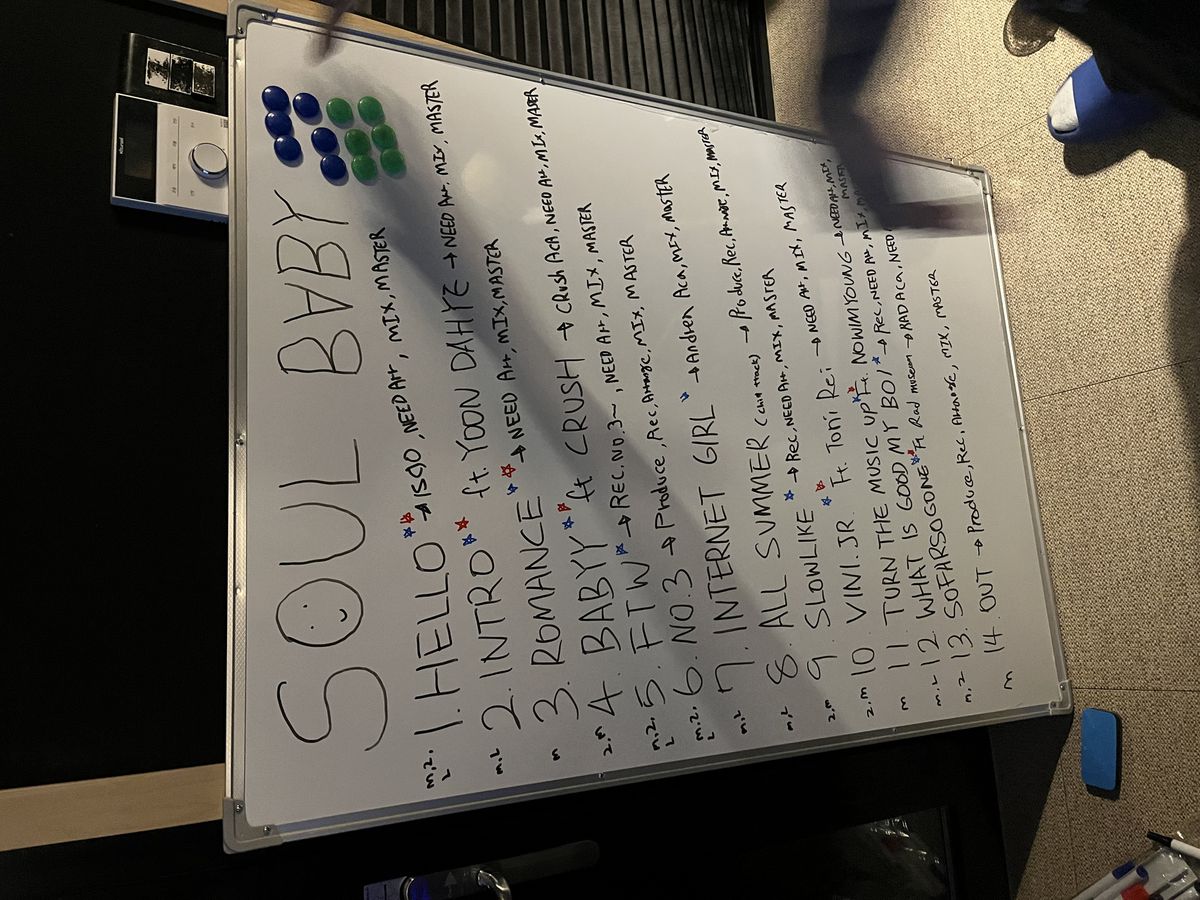 SOUL BABY
m,2,L 1. HELLO → ISSO, NEED Arr, MIX, MASTER
m,L 2. INTRO ft YOON DAHYE → NEED Arr, MIX, MASTER
m 3. ROMANCE → NEED Arr, MIX, MASTER
2,m 4. BABYY ft CRUSH → CRUSH ACA, NEED Arr, MIX, MASTER
m,2,L 5. FTW → REC.NO.3~, NEED Arr, MIX, MASTER
m,2,L 6. NO.3 → Produce, Rec, Arrange, MIX, MASTER
m,L 7. INTERNET GIRL → Andrea Aca, MIX, MASTER
m,L 8. ALL SUMMER → Produce, Rec, Arrange, MIX, MASTER
2,m 9. SLOWLIKE → Rec, NEED Arr, MIX, MASTER
2,m 10. VINI.JR Ft. Toni Rei → NEED Arr, MIX, MASTER
m 11. TURN THE MUSIC UP Ft. NOWIMYOUNG → NEED Arr, MIX, MASTER
m,L 12. WHAT IS GOOD MY BOI → Rec, NEED Arr, MIX,
m,2 13. SOFARSOGONE Ft Rad museum → RAD ACA, NEED
m 14. OUT → Produce, Rec, Arrange, MIX, MASTER